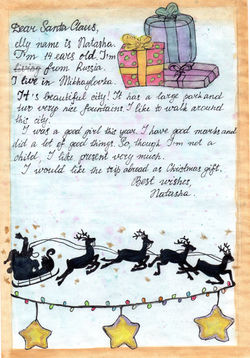 Dear Santa Claus,
My name is Natasha.
I'm 14 ears old. I'm
from Russia.
I live in Mikhaylovka.
It's beautiful city! It has a large park and
two very nice fountains. I like to walk around
this city.
I was a good girl this year. I have good marks and
did a lot of good things. So, though I'm not a
child, I like present very much.
I would like the trip abroad as Christmas gift.
Best wishes,
Natasha.